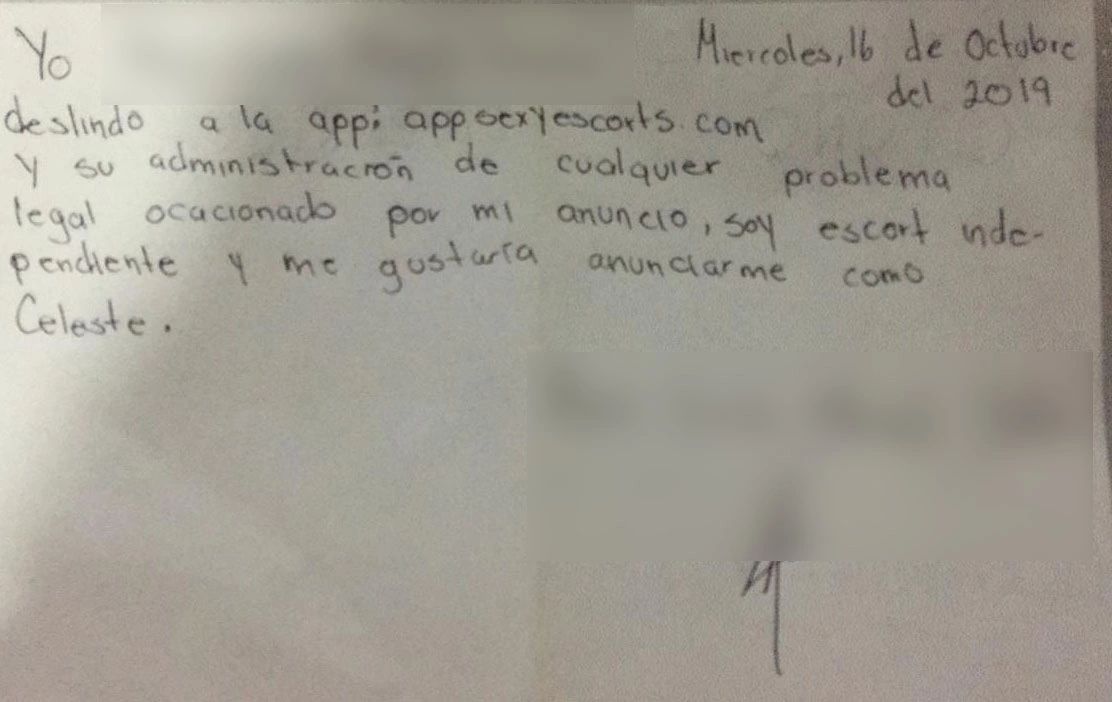 Yo
Miercoles, 16 de Octubre
del 2019
deslindo a la app: appsexyescorts.com
y su administración de cualquier problema
legal ocacionado por mi anuncio, soy escort inde-
pendiente y me gustaría anunciarme como
Celeste.